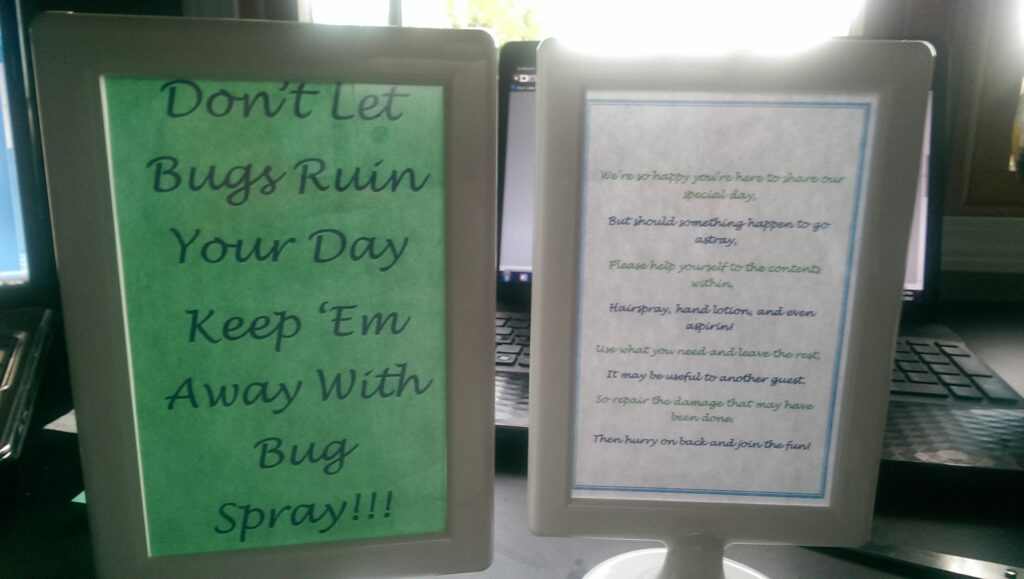 Don't Let
Bugs Ruin
Your Day
Keep 'Em
Away With
Bug
Spray!!!
We're so happy you're here to share our
special day,
But should something happen to go
astray,
Please help yourself to the contents
within,
Hairspray, hand lotion, and even
aspirin!
Use what you need and leave the rest,
It may be useful to another guest.
So repair the damage that may have
been done,
Then hurry on back and join the fun!